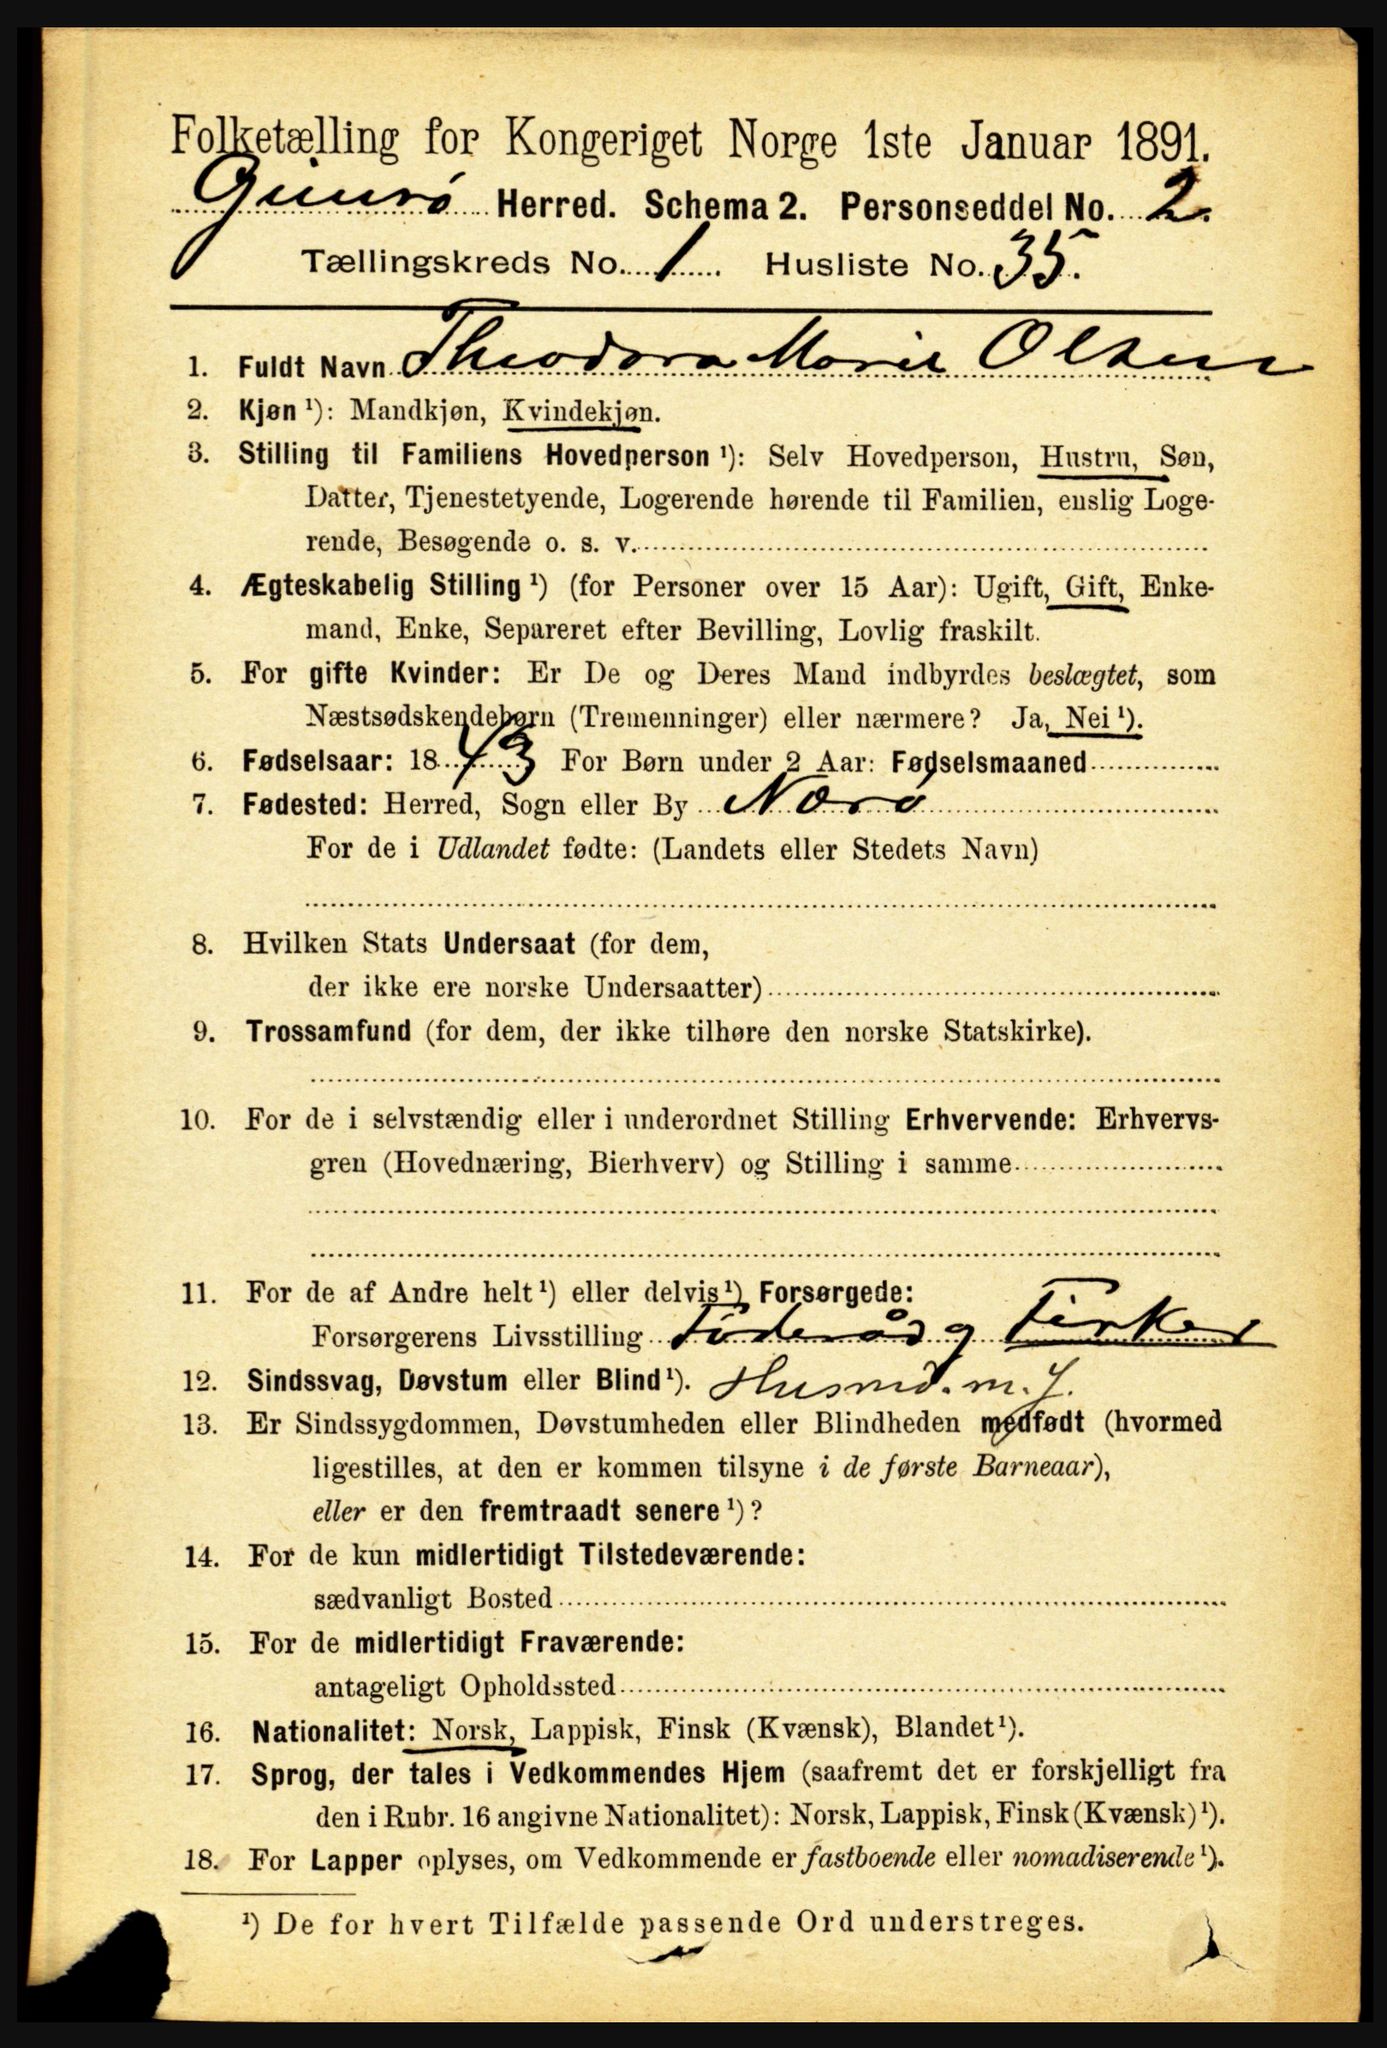 Folketælling for Kongeriget Norge 1ste Januar 1891.
Herred. Schema 2. Personseddel No. 2.
Tællingskreds No. 1 Husliste No. 35.
1. Fuldt Navn Theodora Marie Olsen
2. Kjøn ¹): Mandkjøn, Kvindekjøn.
3. Stilling til Familiens Hovedperson ¹): Selv Hovedperson, Hustru, Søn,
Datter, Tjenestetyende, Logerende hørende til Familien, enslig Loge-
rende, Besøgende o. s. v.
4. Ægteskabelig Stilling ¹) (for Personer over 15 Aar): Ugift, Gift, Enke-
mand, Enke, Separeret efter Bevilling, Lovlig fraskilt.
5. For gifte Kvinder: Er De og Deres Mand indbyrdes beslægtet, som
Næstsødskendebørn (Tremenninger) eller nærmere? Ja, Nei ¹).
6. Fødselsaar: 1843 For Børn under 2 Aar: Fødselsmaaned
7. Fødested: Herred, Sogn eller By Nærø
For de i Udlandet fødte: (Landets eller Stedets Navn)
8. Hvilken Stats Undersaat (for dem,
der ikke ere norske Undersaatter)
9. Trossamfund (for dem, der ikke tilhøre den norske Statskirke).
10. For de i selvstændig eller i underordnet Stilling Erhvervende: Erhvervs-
gren (Hovednæring, Bierhverv) og Stilling i samme
11. For de af Andre helt ¹) eller delvis ¹) Forsørgede:
Forsørgerens Livsstilling Føderåd og Fisker
12. Sindssvag, Døvstum eller Blind ¹). Husmd. m. J.
13. Er Sindssygdommen, Døvstumheden eller Blindheden medfødt (hvormed
ligestilles, at den er kommen tilsyne i de første Barneaar),
eller er den fremtraadt senere ¹)?
14. For de kun midlertidigt Tilstedeværende:
sædvanligt Bosted
15. For de midlertidigt Fraværende:
antageligt Opholdssted
16. Nationalitet: Norsk, Lappisk, Finsk (Kvænsk), Blandet ¹).
17. Sprog, der tales i Vedkommendes Hjem (saafremt det er forskjelligt fra
den i Rubr. 16 angivne Nationalitet): Norsk, Lappisk, Finsk (Kvænsk) ¹).
18. For Lapper oplyses, om Vedkommende er fastboende eller nomadiserende ¹).
¹) De for hvert Tilfælde passende Ord understreges.